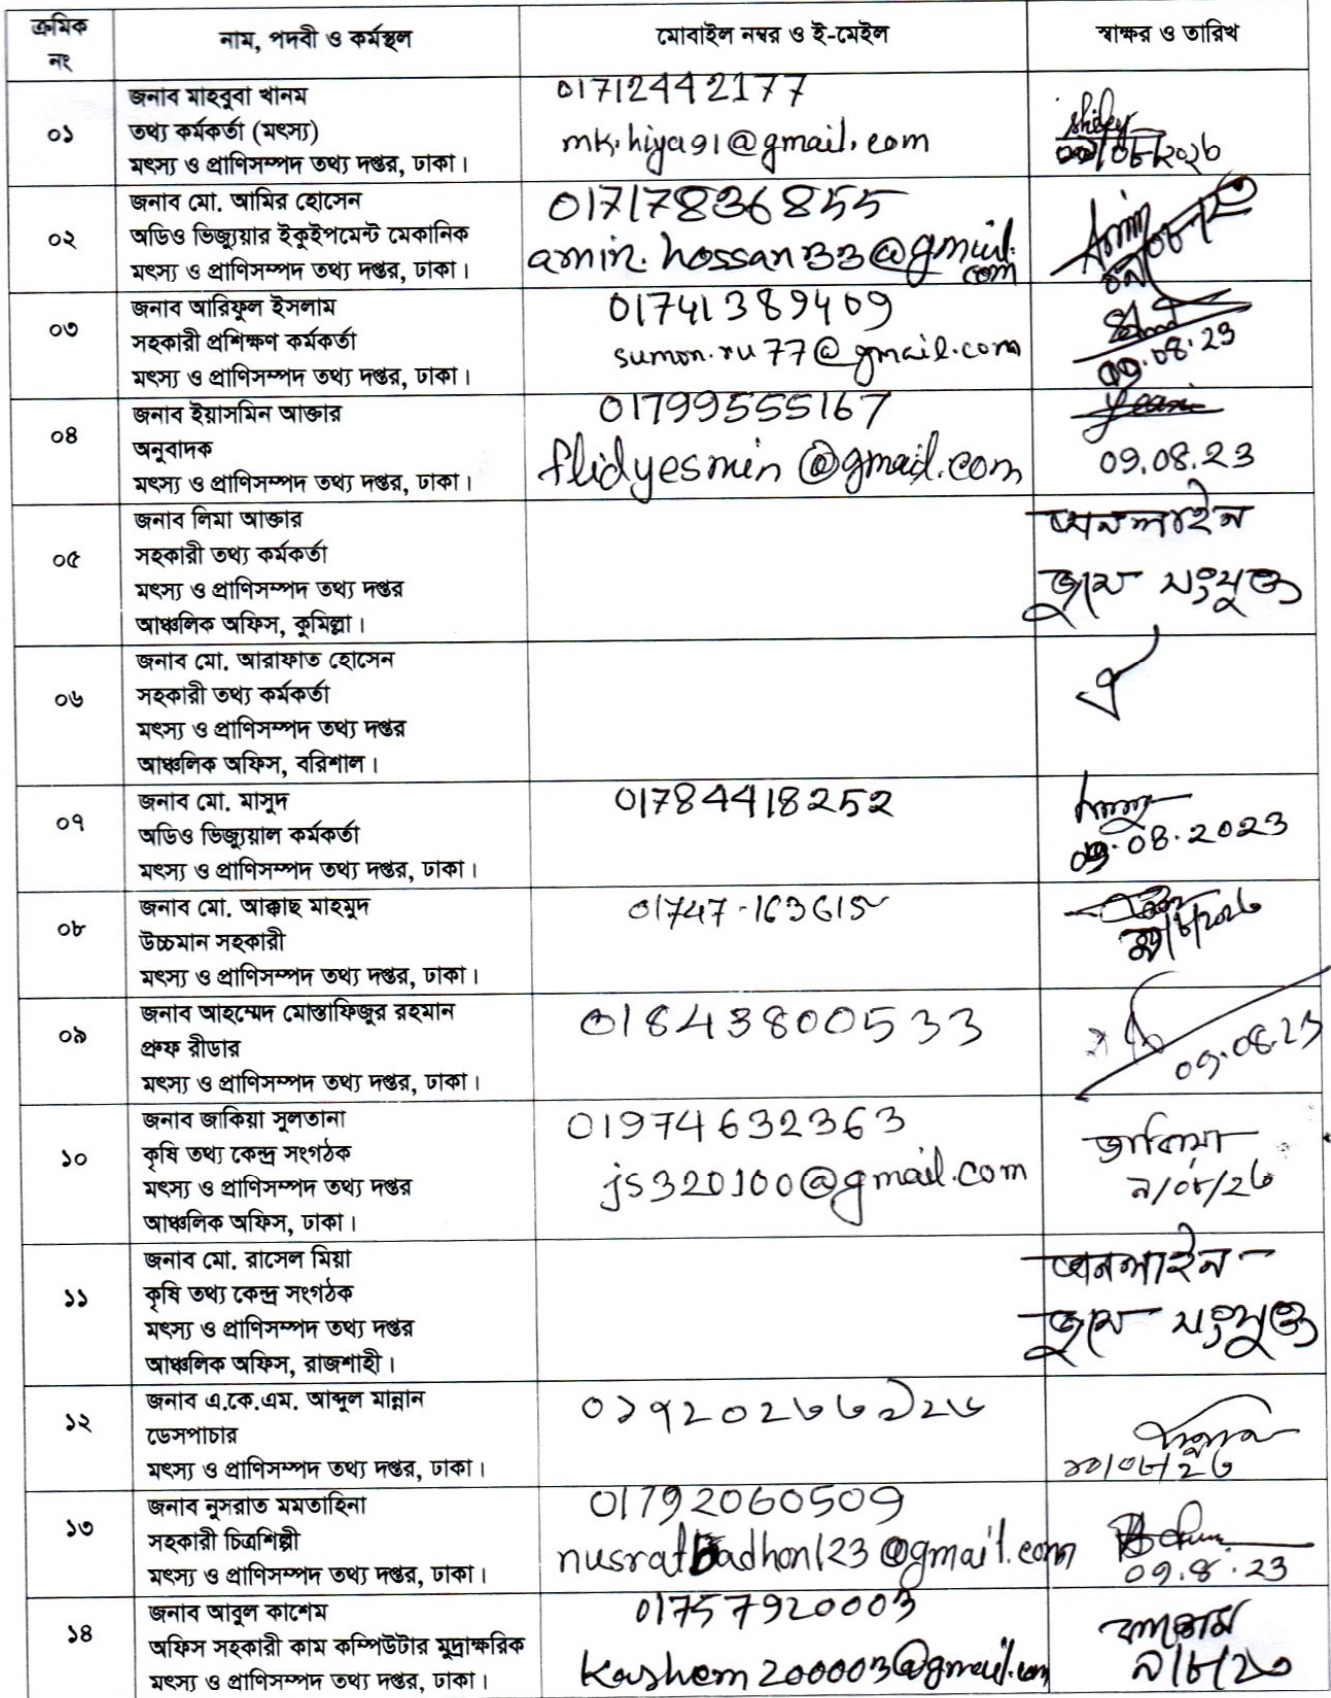 ক্রমিক নং
নাম, পদবী ও কর্মস্থল
মোবাইল নম্বর ও ই-মেইল
স্বাক্ষর ও তারিখ
০১
জনাব মাহবুবা খানম
তথ্য কর্মকর্তা (মৎস্য)
মৎস্য ও প্রাণিসম্পদ তথ্য দপ্তর, ঢাকা।
01712442177
mk.hiya91@gmail.com
০২
জনাব মো. আমির হোসেন
অডিও ভিজ্যুয়ার ইকুইপমেন্ট মেকানিক
মৎস্য ও প্রাণিসম্পদ তথ্য দপ্তর, ঢাকা।
01717836855
amir.hossan33@gmail.com
০৩
জনাব আরিফুল ইসলাম
সহকারী প্রশিক্ষণ কর্মকর্তা
মৎস্য ও প্রাণিসম্পদ তথ্য দপ্তর, ঢাকা।
01741389409
sumon.ru77@gmail.com
09.08.23
০৪
জনাব ইয়াসমিন আক্তার
অনুবাদক
মৎস্য ও প্রাণিসম্পদ তথ্য দপ্তর, ঢাকা।
01799555167
flidyesmin@gmail.com
09.08.23
০৫
জনাব লিমা আক্তার
সহকারী তথ্য কর্মকর্তা
মৎস্য ও প্রাণিসম্পদ তথ্য দপ্তর
আঞ্চলিক অফিস, কুমিল্লা।
অনলাইন
জুমে সংযুক্ত
০৬
জনাব মো. আরাফাত হোসেন
সহকারী তথ্য কর্মকর্তা
মৎস্য ও প্রাণিসম্পদ তথ্য দপ্তর
আঞ্চলিক অফিস, বরিশাল।
ঐ
০৭
জনাব মো. মাসুদ
অডিও ভিজ্যুয়াল কর্মকর্তা
মৎস্য ও প্রাণিসম্পদ তথ্য দপ্তর, ঢাকা।
01784418252
09.08.2023
০৮
জনাব মো. আক্কাছ মাহমুদ
উচ্চমান সহকারী
মৎস্য ও প্রাণিসম্পদ তথ্য দপ্তর, ঢাকা।
01747-163615
০৯
জনাব আহম্মেদ মোস্তাফিজুর রহমান
প্রুফ রীডার
মৎস্য ও প্রাণিসম্পদ তথ্য দপ্তর, ঢাকা।
01843800533
09.08.23
১০
জনাব জাকিয়া সুলতানা
কৃষি তথ্য কেন্দ্র সংগঠক
মৎস্য ও প্রাণিসম্পদ তথ্য দপ্তর
আঞ্চলিক অফিস, ঢাকা।
01974632363
js320100@gmail.com
জাকিয়া
৯/০৮/২৩
১১
জনাব মো. রাসেল মিয়া
কৃষি তথ্য কেন্দ্র সংগঠক
মৎস্য ও প্রাণিসম্পদ তথ্য দপ্তর
আঞ্চলিক অফিস, রাজশাহী।
অনলাইন
জুমে সংযুক্ত
১২
জনাব এ.কে.এম. আব্দুল মান্নান
ডেসপাচার
মৎস্য ও প্রাণিসম্পদ তথ্য দপ্তর, ঢাকা।
১৩
জনাব নুসরাত মমতাহিনা
সহকারী চিত্রশিল্পী
মৎস্য ও প্রাণিসম্পদ তথ্য দপ্তর, ঢাকা।
01792060509
nusratbadhon123@gmail.com
09.8.23
১৪
জনাব আবুল কাশেম
অফিস সহকারী কাম কম্পিউটার মুদ্রাক্ষরিক
মৎস্য ও প্রাণিসম্পদ তথ্য দপ্তর, ঢাকা।
01757920003
kashem200003@gmail.com
কাশেম
৯/৮/২৩